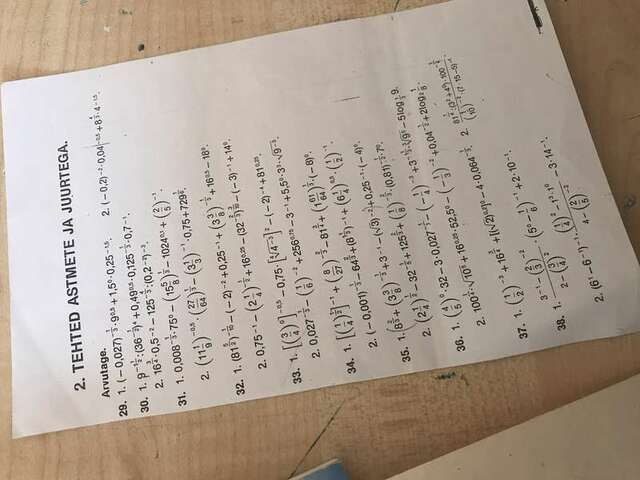 2. TEHTED ASTMETE JA JUURTEGA.
Arvutage.
29. 1. (−0,027)^(−1/3)·9^(0,5) + 1,5^0·0,25^(−1,5). 2. (−0,2)^(−2)·0,04^(−0,5) + 8^(4/3)·4^(−1,5).
30. 1. 9^(−1 1/2):(36^(−1/2))^4 + 0,49^(0,5)·0,125^(−1/3)·0,7^(−1).
2. 16^(3/4)·0,5^(−2) − 125^(−4/3):(0,2^(−2))^(−3).
31. 1. 0,008^(−1/3)·75^0 − (15 5/8)^(1/3) − 1024^(0,1) + (2/5)^(−1).
2. (11 1/9)^(−0,5)·(27/64)^(1/3) − (3 1/3)^(−1)·0,75 + 729^(1/6).
32. 1. (81^(5/2))^(−1/10) − (−2)^(−2) + 0,25^(−1) + (3 3/8)^(−1/3) + 16^(0,5) − 18^0.
2. 0,75^(−1) − (2 1/4)^(−1/2) + 16^(0,25) − (32^(−2/3))^(3/10) − (−3)^(−1) + 14^0.
33. 1. [(3/4)^0]^(−0,5) − 0,75·[∜(4^(−3))]^2 − (−2)^(−4) + 81^(0,25).
2. 0,027^(−1/3) − (1/6)^(−2) + 256^(0,75) − 3^(−1) + 5,5^0·3^3·√(9^(−3)).
34. 1. [(1/4)^(1/2)]^(−1) + (8/27)^(−2/3) − 81^(3/4) + (1 61/64)^(1/3)·(−8)^0.
2. (−0,001)^(−1/3) − 64^(2/3) + (8^(1 1/3))^(−1) + (6 1/4)^(0,5)·(1/2)^(−1).
35. 1. (8^(2/3) + (3 3/8)^(−1/3) + 3^(−1) − (√3)^(−2)) + 0,25^(−1)·(−4)^0.
2. (2 1/4)^(1/2) − 32^(−1/5) + 125^(2/3) + (1/8)^(−2/3)·(0,81)^(−1/2)·7^0.
36. 1. (4/5)^0·32 − 3·0,027^(−1/3) − (−1/4)^(−3) + 3^(−1/3)·∛(9^5) − 5log_(1/3) 9.
2. 100^(1/4)·√(10^5) + 16^(0,25)·52,5^0 − (−1/3)^(−2) + 0,04^(−1/2) + 2log_2 1/8.
37. 1. (1/2)^(−3) + 16^(3/4) + [(√2)^(0,2)]^0 − 4·0,064^(−1/3). 2. (81^(1/4)·(3^2 + 4^0)·100^(−1/2))/((1/10)^(−2)·(7·15 − 5)^(−1)).
38. 1. (3^(−1) − (2/3)^(−2))/(2 − (3/4)^2)·(5^0 − 1/6)^(−1) + 2·10^(−1).
2. (6^1 − 6^(−1))^(−1)·((1/4)^2 − 1^3·1^0)/(4 − (2/5)^(−2)) − 3·14^(−1).